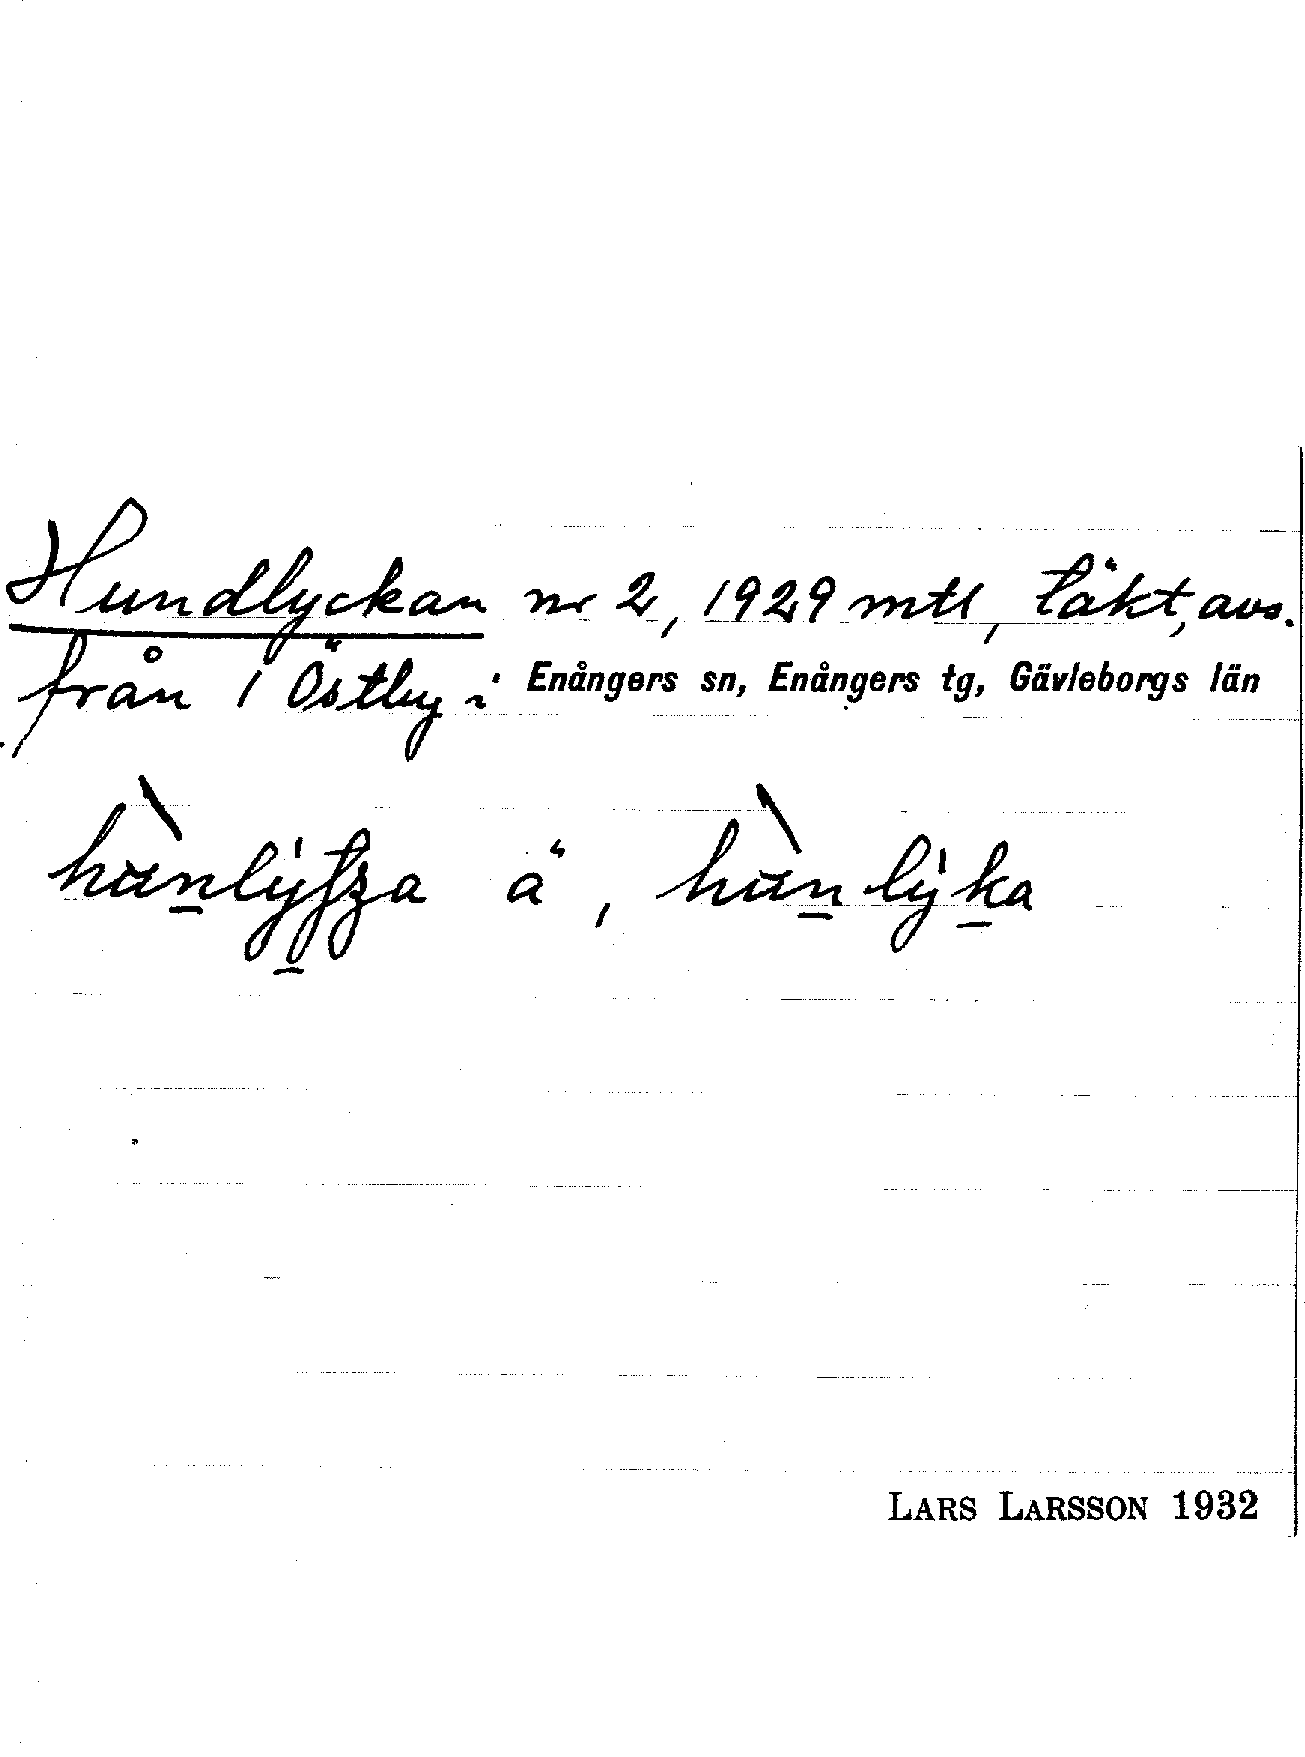 Hundlyckan nr 2, 1929 mtl, täkt, avs.
från 1 Östby i Enångers sn, Enångers tg, Gävleborgs län
ä,
LARS LARSSON 1932